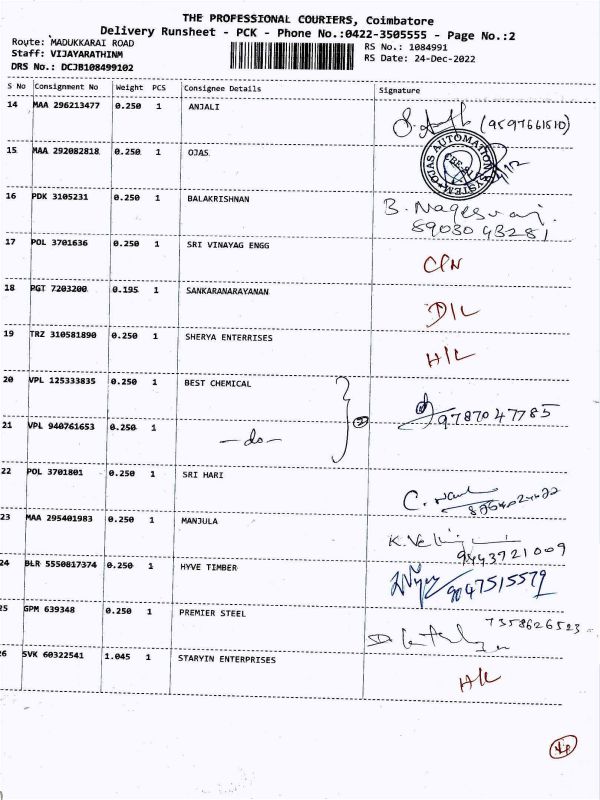 THE PROFESSIONAL COURIERS, Coimbatore
Delivery Runsheet - PCK - Phone No.:0422-3505555 - Page No.:2
Route: MADUKKARAI ROAD
Staff: VIJAYARATHINM
DRS No.: DCJB108499102
RS No.: 1084991
RS Date: 24-Dec-2022
S No Consignment No Weight PCS Consignee Details Signature
14 MAA 296213477 0.250 1 ANJALI (9597661510)
15 MAA 292082818 0.250 1 OJAS
OJAS AUTOMATION SYSTEM
CBE-21
16 PDK 3105231 0.250 1 BALAKRISHNAN B. Nageswari
89030 43281
17 POL 3701636 0.250 1 SRI VINAYAG ENGG CPN
18 PGT 7203200 0.195 1 SANKARANARAYANAN D/L
19 TRZ 310581890 0.250 1 SHERYA ENTERRISES H/L
20 VPL 125333835 0.250 1 BEST CHEMICAL 9787047785
21 VPL 940761653 0.250 1 -do- 2
22 POL 3701801 0.250 1 SRI HARI C.
23 MAA 295401983 0.250 1 MANJULA K.
9443721009
24 BLR 5550817374 0.250 1 HYVE TIMBER 9047515579
25 GPM 639348 0.250 1 PREMIER STEEL 7358626523
26 SVK 60322541 1.045 1 STARYIN ENTERPRISES H/L